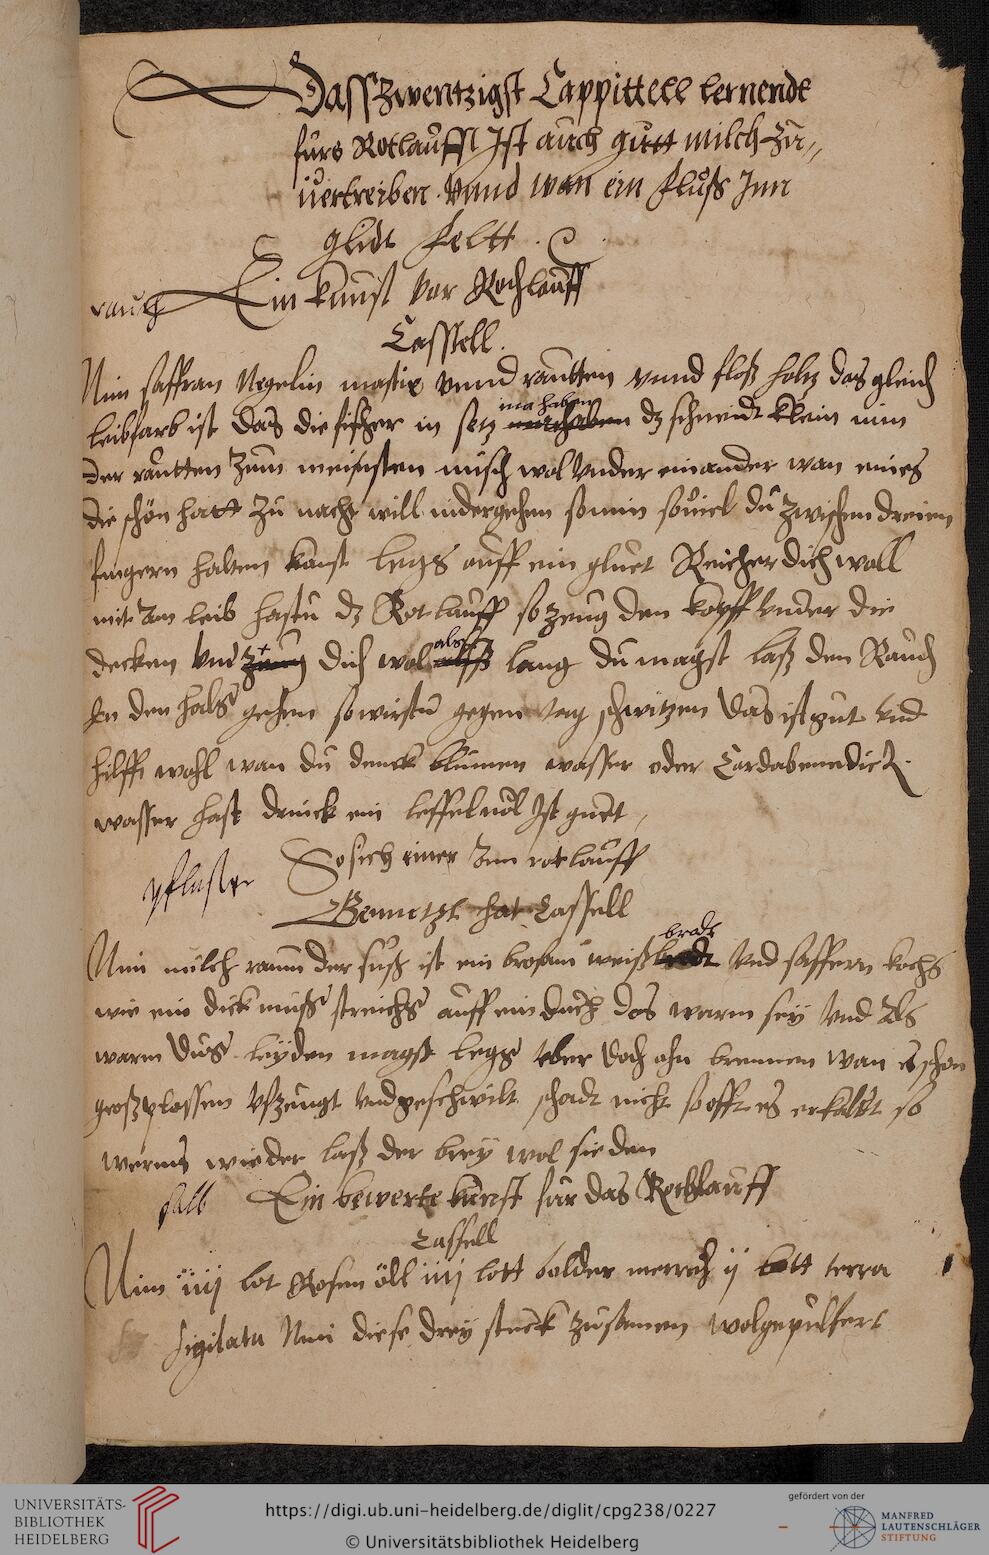 95
Dass Zwentzigst Cappittell lernendt
fürs Rotlaüfft Ist aüch gütt milch zü„
üertreiben. Vnnd wan ein flüß Jnn
glidt feltt.
rauch Ein kunst vor Rochlaüff
Casstell.
Nim saffran Negelin mastix vnnd raütten vnnd floß holtz das gleich
leibfarb ist das die fischer in setz ina haben dz schneidt klein nim
der raütten zum meinsten misch wol vnder einander wan eines
die schön hatt zü nacht will nidergehen so nim soüiel dü zwischen dreien
fingern halten kanst legs aüff ein glüet Reicher dich woll
mit am leib hastü dz Rotlaüff so zeüg den kopff vnder die
decken vnd dich wol als lang dü magst laß den Raüch
In den halß gehen so wirstü gegen tag schwitzen das ist gut vnd
hilfft wohl wan dü denck blümen wasser oder Cardabenedict
wasser hast drinck ein leffel uol Ist guet,
pflaster So sich einer Inn rotlaüff
Genetzt hat Cassell
Nim milch raum der süß ist ein brosam weiß brodt vnd saffern kochs
wie ein dick muß streichs aüff ein düch das warm sey vnd als
warm düs leyden magst legs vber doch ohn brennen wan es schon
groß plassen vffzeügt vnd geschwilt schadt nicht so offt es erkaltt so
werms wieder laß der brey wol sieden
salb Ein bewerte künst für das Rothlaüff
Cassell
Nim iiij lot Rosen öll iiij lott holder ij lott terra
sigilata Nim diese drey stück züsamen wolgepülfert
UNIVERSITÄTS-
BIBLIOTHEK
HEIDELBERG
https://digi.ub.uni-heidelberg.de/diglit/cpg238/0227
© Universitätsbibliothek Heidelberg
gefördert von der
MANFRED
LAUTENSCHLÄGER
STIFTUNG